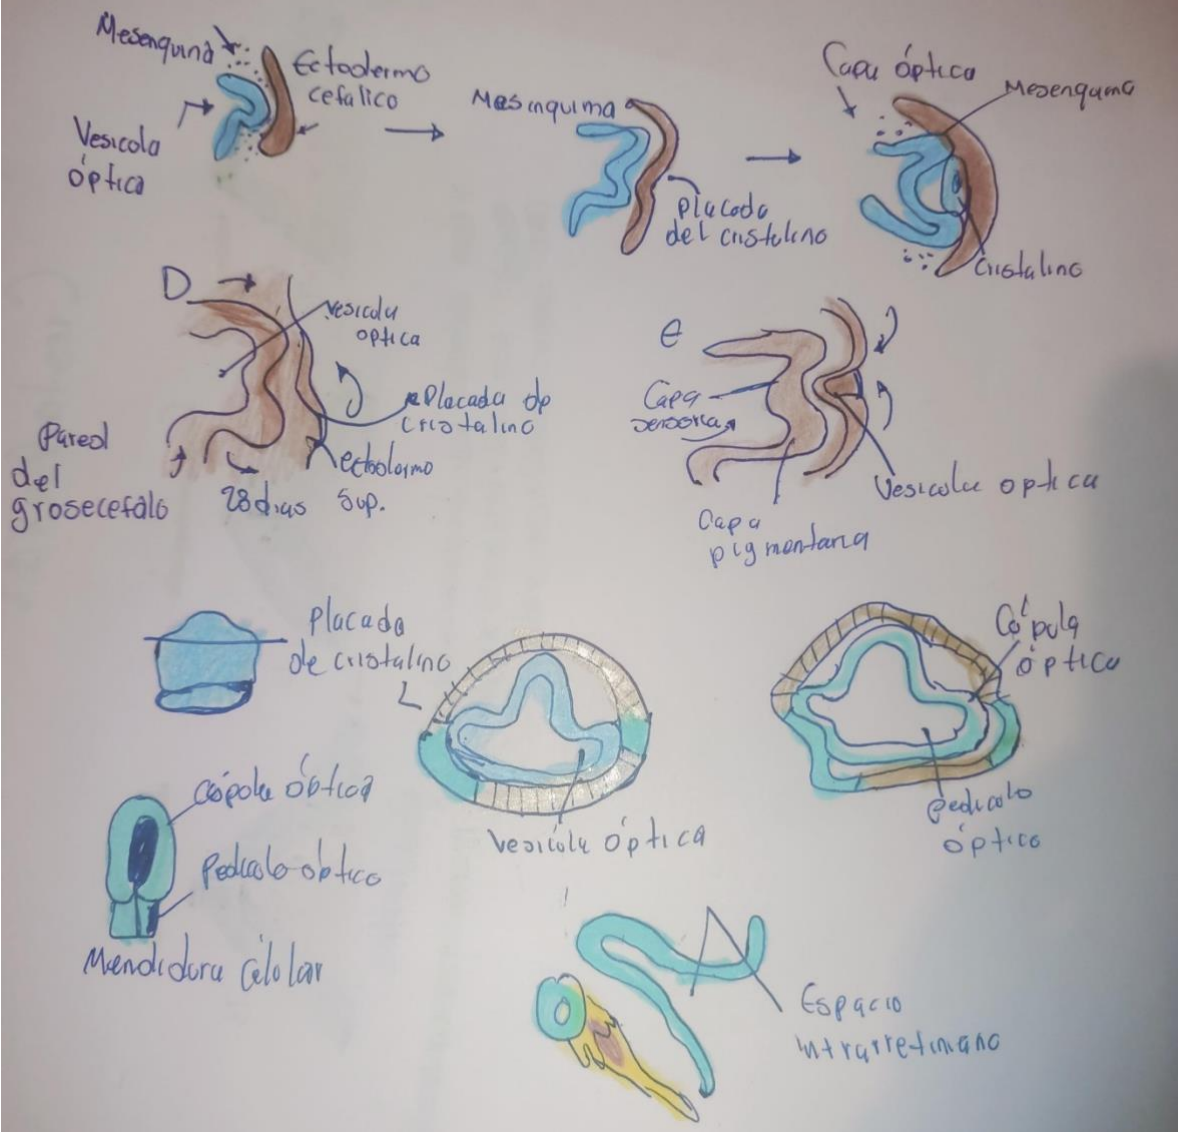 Mesenquina
Ectodermo
cefalico
Vesicola
óptica
Mesinquima
Placoda
del cristalino
Capa óptica
Mesenquma
Cristalino
D
vesicula
optica
Placada de
cristalino
Pared
del
grosecefalo
28 dias
Sup.
e
Capa
Vesicola optica
Capa
pigmentaria
Placado
de cristalino
Vesícula óptica
Cópula
óptica
Pedicolo
óptico
Cópola óbtica
Pedicolo obtico
Mendidura Célolar
Espacio
intrarretiniano